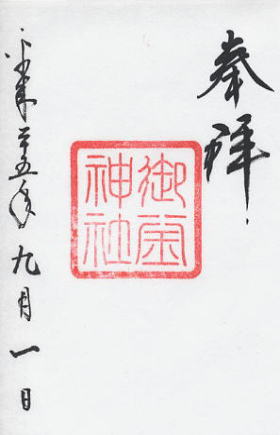 奉拝
御金神社
平成二十五年九月一日